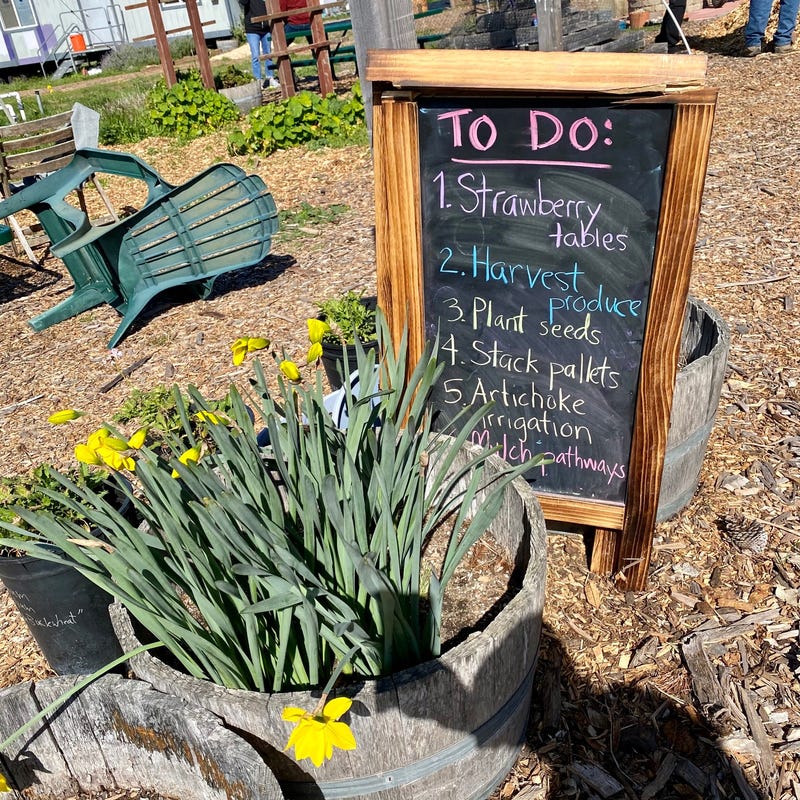 TO DO:
1. Strawberry
tables
2. Harvest
produce
3. Plant seeds
4. Stack pallets
5. Artichoke
irrigation
Mulch pathways